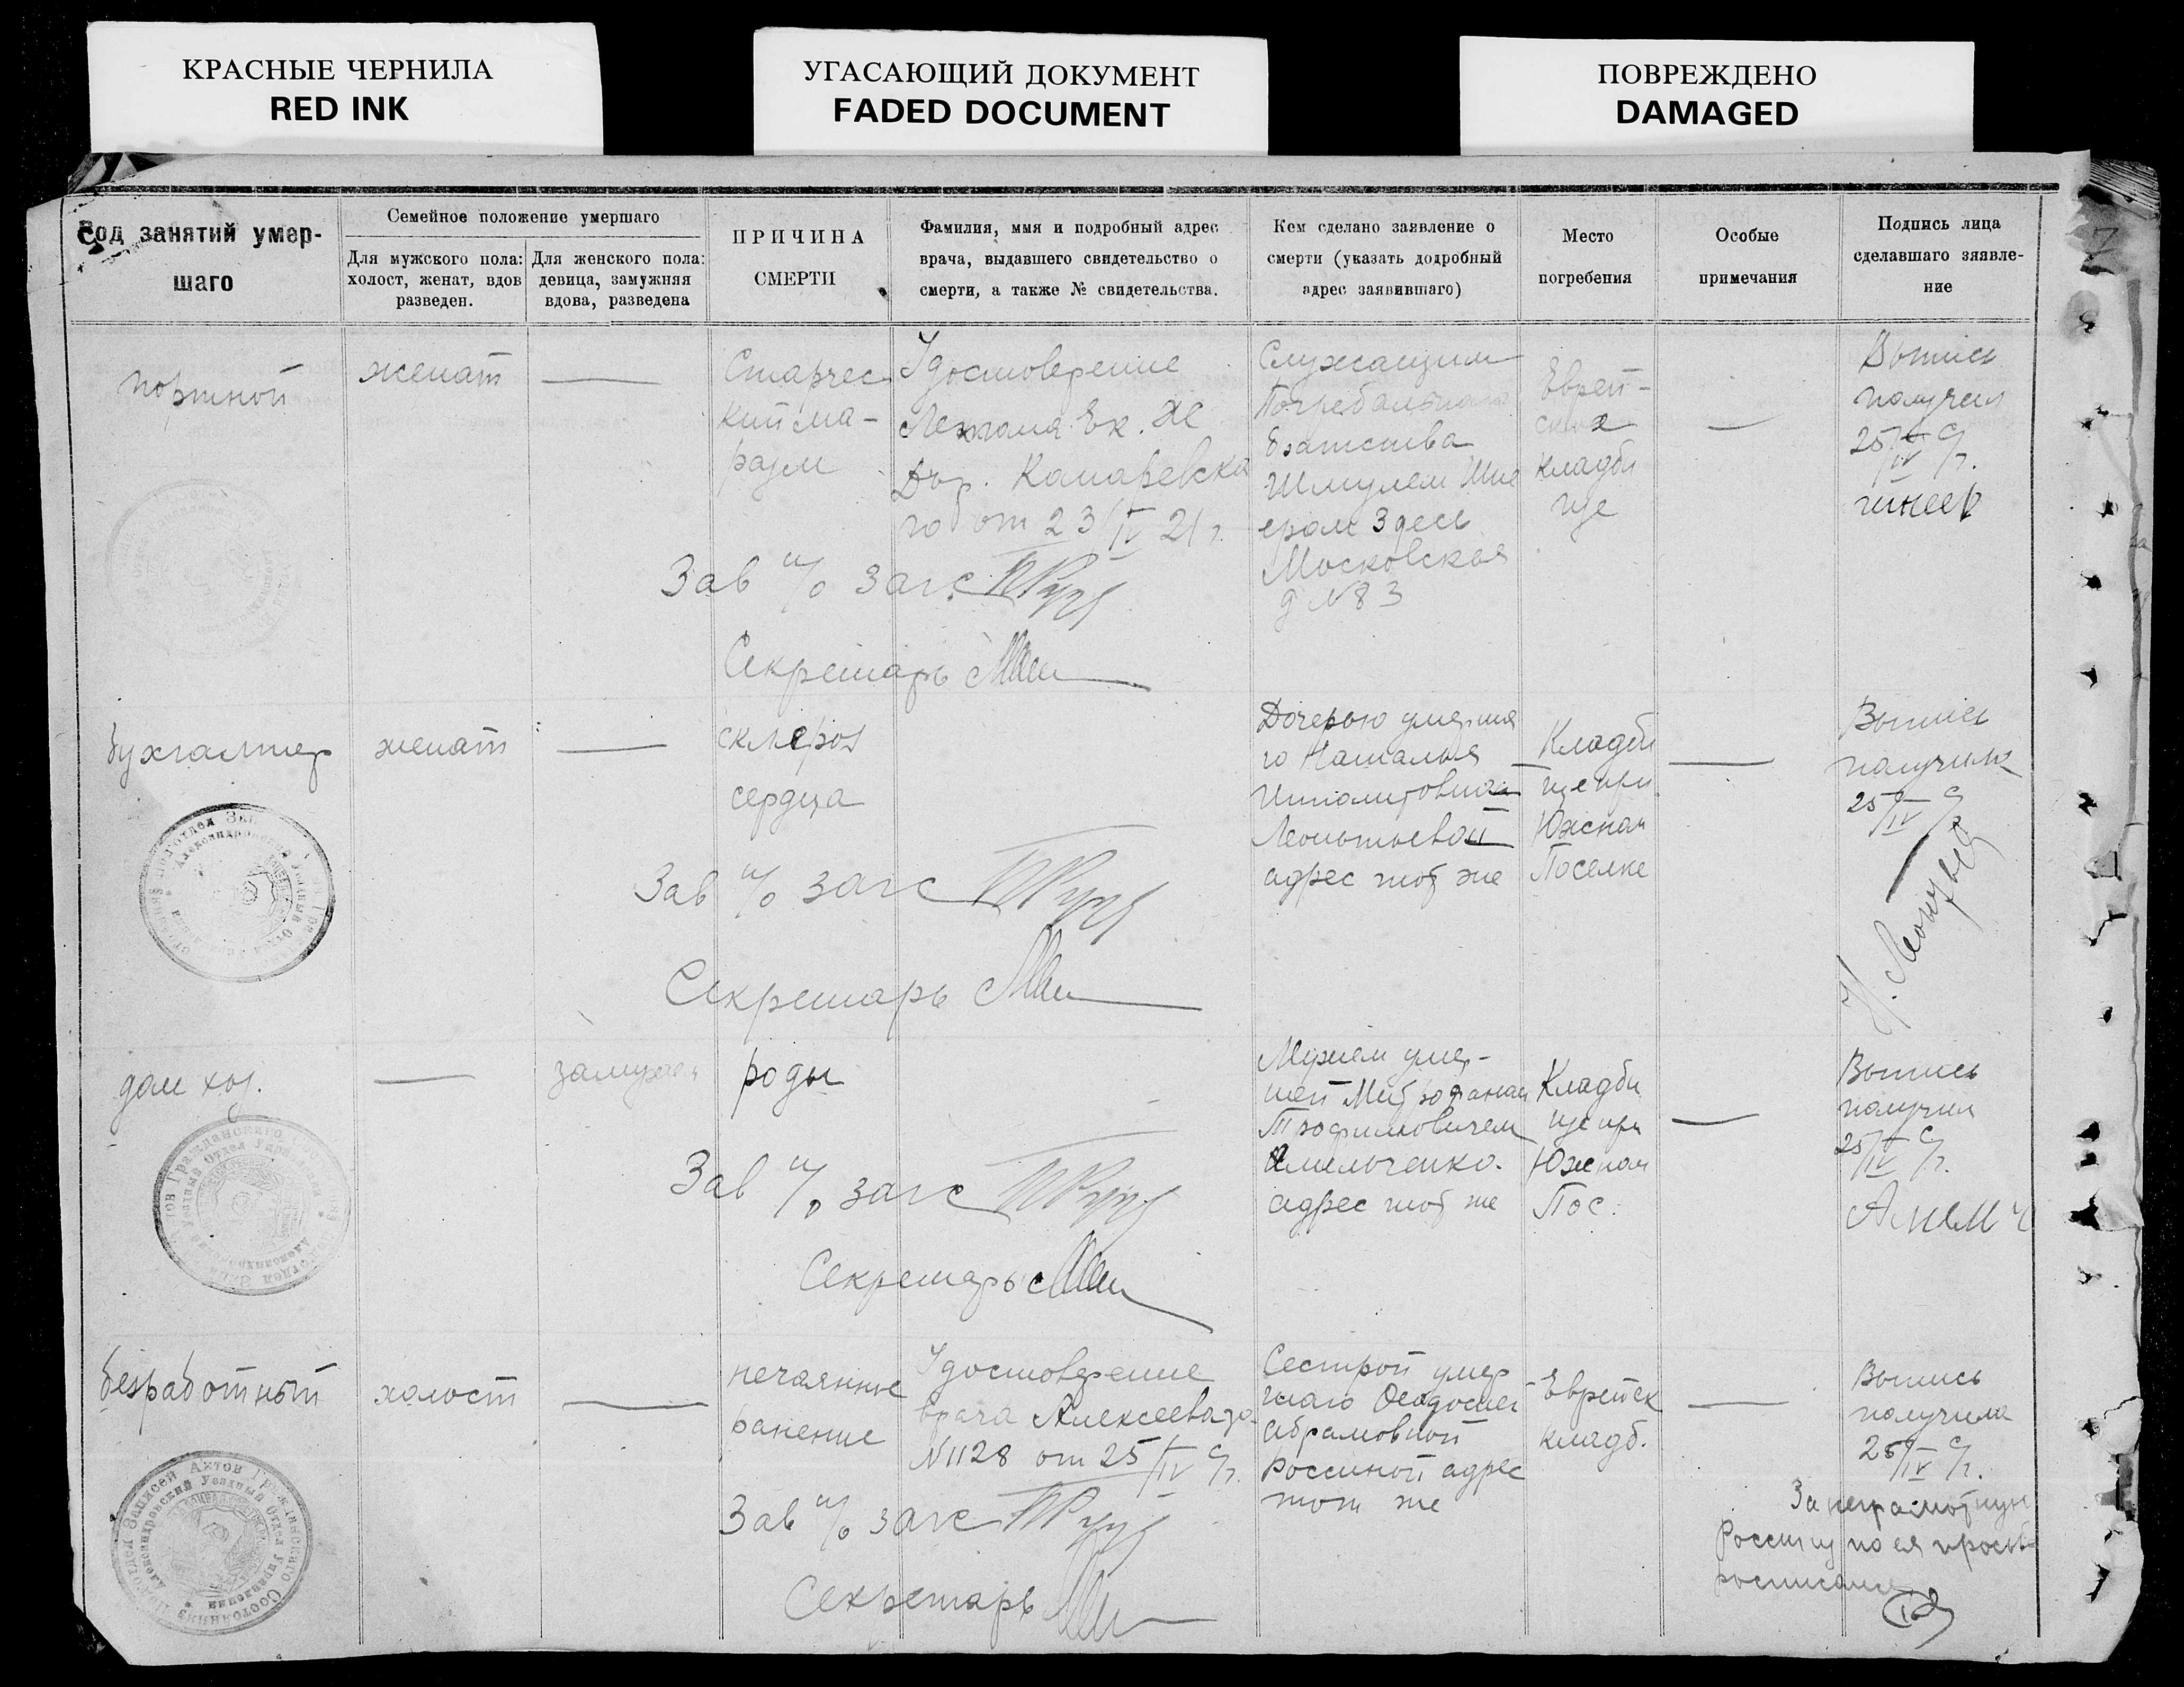 КРАСНЫЕ ЧЕРНИЛА
RED INK
УГАСАЮЩИЙ ДОКУМЕНТ
FADED DOCUMENT
ПОВРЕЖДЕНО
DAMAGED
Род занятий умер-
шаго
Семейное положение умершаго
Для мужского пола:
холост, женат, вдов
разведен.
Для женского пола:
девица, замужняя
вдова, разведена
ПРИЧИНА
СМЕРТИ
Фамилия, имя и подробный адрес
врача, выдавшего свидетельство о
смерти, а также № свидетельства.
Кем сделано заявление о
смерти (указать додробный
адрес заявившаго)
Место
погребения
Особые
примечания
Подпись лица
сделавшаго зяявле-
ние
портной
женат
—
Старчес
кий ма-
разм
Удостоверение
Лекпома Ек. Ж
Дор.
го от 23/IV 21 г.
Служащим
Погребального
Братства
Шмулем Шне
ером Здесь
Московская
д N 83
Еврей-
ское
кладби
ще
—
Выпись
получил
25/IV с/г.
шнеер
Зав п/о загс
Секретарь
бухгалтер
женат
—
склероз
сердца
Дочерью умерша
го Наталья
Ипполитовной
Леонтьевой
адрес тот же
Кладби
ще при
Южном
Поселке
—
Выпись
получила
25/IV с/г.
Н. Леонтьева
Зав п/о загс
Секретарь
дом хоз.
—
замужем
роды
Мужем умер-
шей Митрофаном
Трофимовичем
Амельченко.
адрес тот же
Кладби
ще при
Южном
Пос.
—
Выпись
получил
25/IV с/г.
Амелч
Зав п/о загс
Секретарь
безработный
холост
—
нечаянное
ранение
Удостоверение
врача Алексеева за
N 1128 от 25/IV с/г.
Сестрой умер
шаго Феодосией
Абрамовной
Россиной адрес
тот же
Еврейск
кладб.
—
Выпись
получила
25/IV с/г.
За неграмотную
Россину по ея прось-
росписался
Зав п/о загс
Секретарь